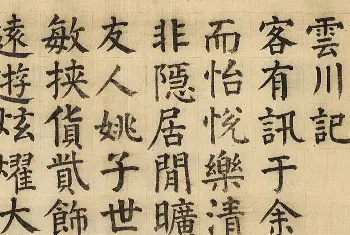 雲川記
客有訊于余
而怡悅樂清
非隱居閒曠
友人姚子世
敏挟貨貲飾
遠遊炫燿大